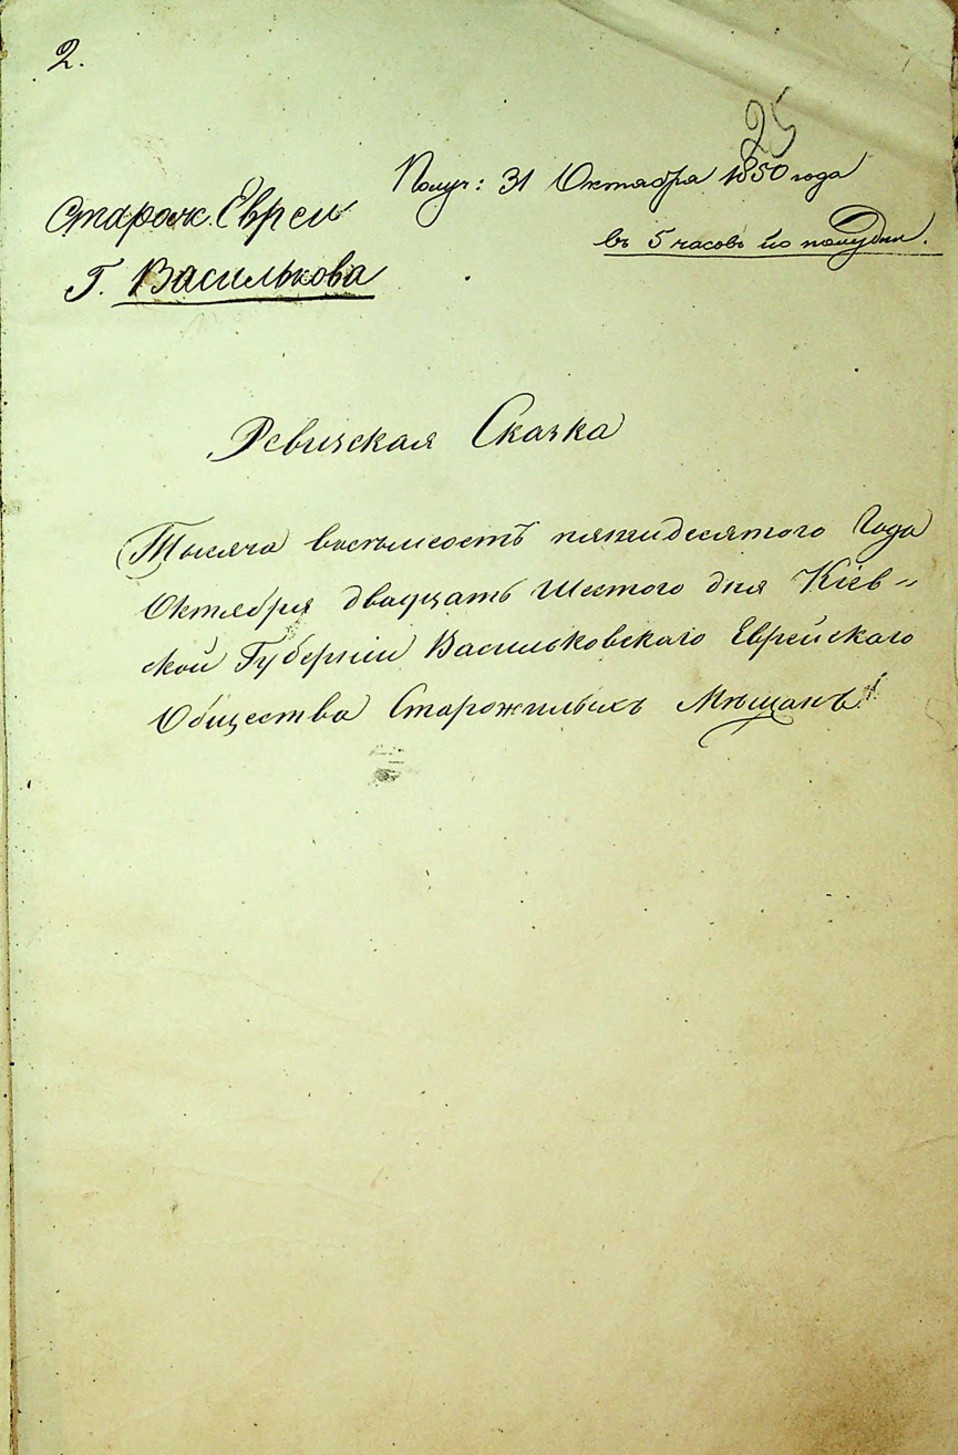 2.
25
Получ: 31 Октября 1850 года
въ 5 часовъ по полудни.
Старож. Евреи
Г. Василькова
Ревизская Сказка
Тысяча восемьсотъ пятидесятого Года
Октября двадцать Шестого дня Кіев=
ской Губерніи Васильковскаго Еврейскаго
Общества Старожилыхъ Мѣщанъ